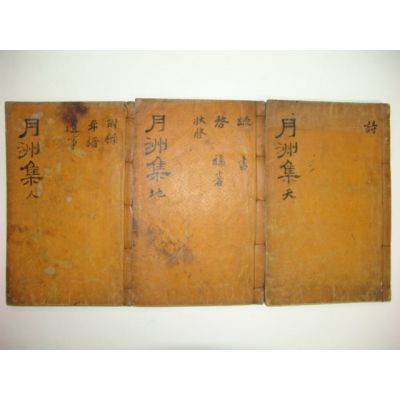 詩
月洲集 天
疏 書
啓 雜著
狀啓
月洲集 地
附錄
年譜
遺事
月洲集 人